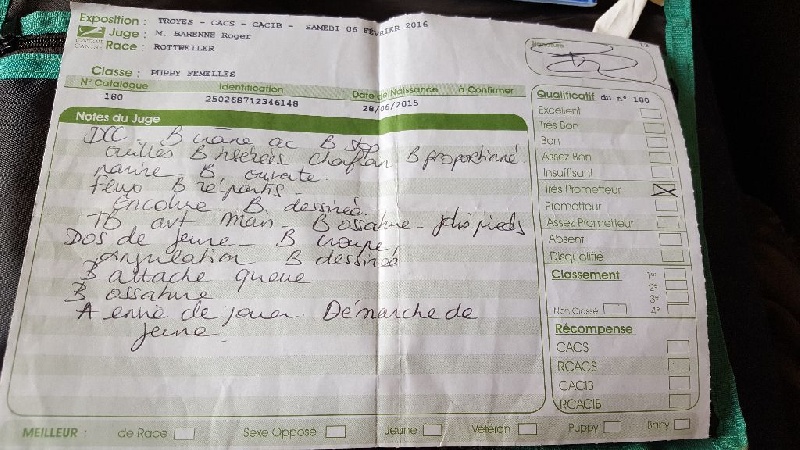 Exposition : TROYES - CACS - CACIB - SAMEDI 06 FÉVRIER 2016
Juge : M. BARENNE Roger
Race : ROTTWEILER
Classe : PUPPY FEMELLES
N° Catalogue Identification Date de Naissance à Confirmer
180 250268712346148 28/06/2015
Notes du Juge
B crâne ac B stop
oreilles B insérés chanfrein B proportionné
narine B ouverte.
Feux B répartis.
Encolure B. dessinée.
TB avt main B ossature - jolis pieds
Dos de jeune - B croupe
angulation B dessinée
B attache queue
B ossature
A envie de jouer. Démarche de
jeune.
Qualificatif du n° 180
Excellent
Très Bon
Bon
Assez Bon
Insuffisant
Très Prometteur
Prometteur
Assez Prometteur
Absent
Disqualifié
Classement 1er
2e
3e
Non Classé 4e
Récompense
CACS
RCACS
CACIB
RCACIB
MEILLEUR : de Race Sexe Opposé Jeune Vétéran Puppy Baby